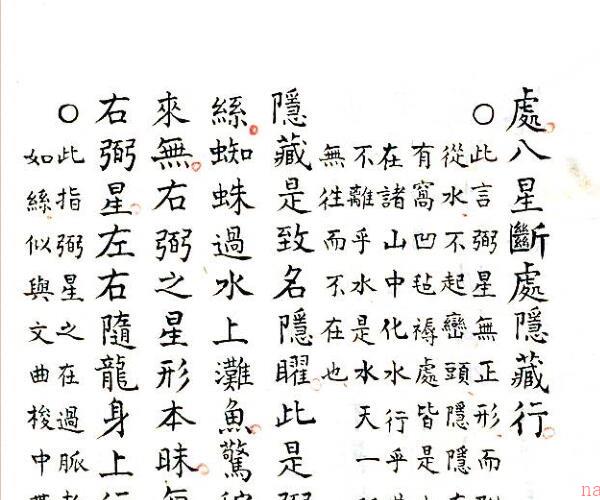 處八星斷處隱藏行
○此言弼星無正形而
從水不起巒頭隱隱
有窩凹毡褥處皆是
在諸山中化水行乎
不離乎水是水天一
無徃而不在也
隱藏是致名隱曜此是
絲蜘蛛過水上灘魚驚
來無右弼之星形本昧
右弼星左右隨龍身上行
○此指弼星之在過脈
如絲似與文曲梭中
na